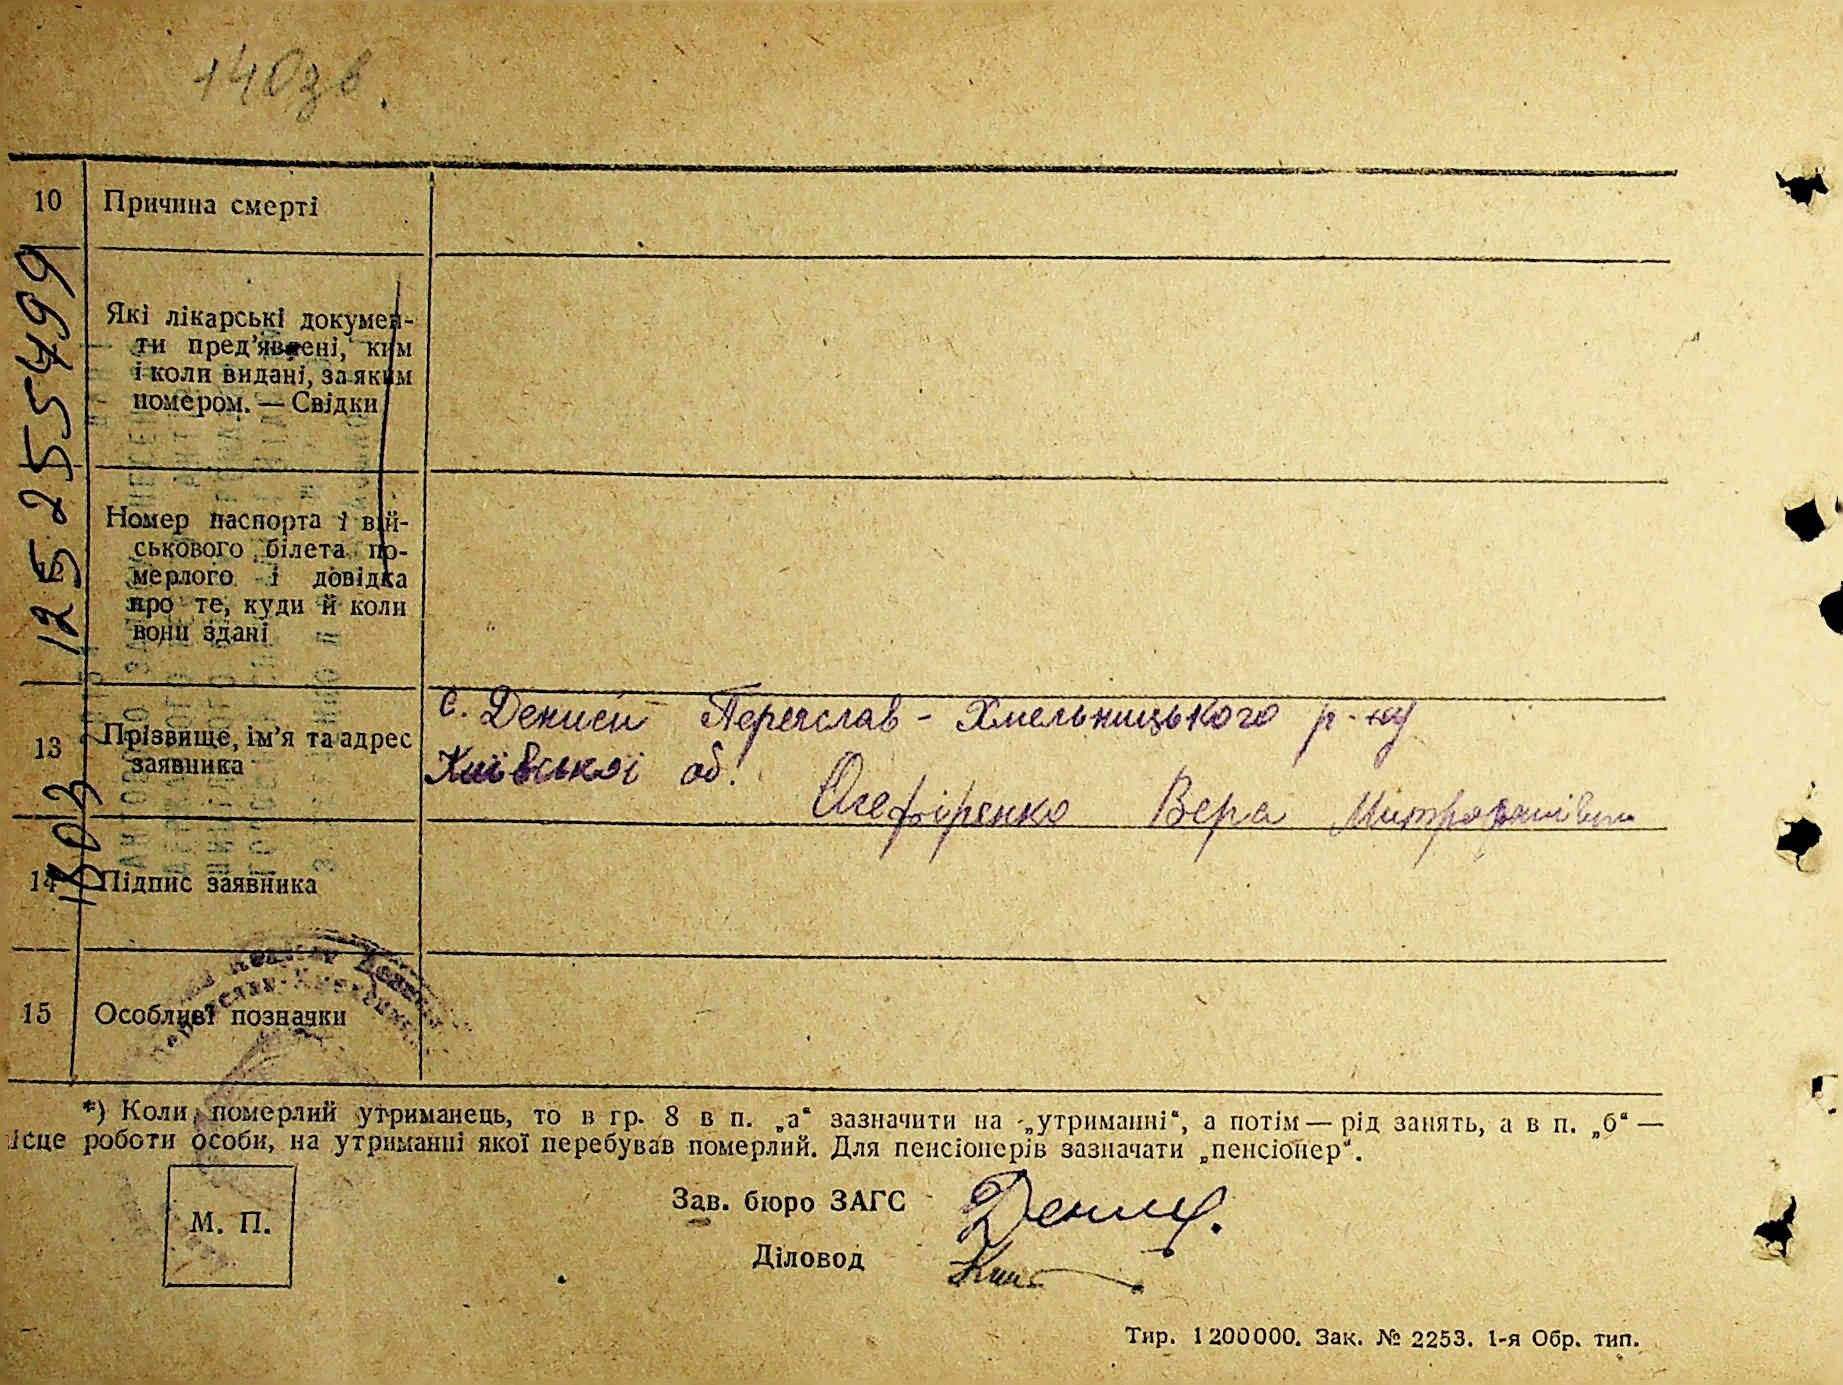 140зв.
10 Причина смерті
Які лікарські докумен-
ти пред'явлені, ким
і коли видані, за яким
номером. — Свідки
Номер паспорта і вій-
ськового білета по-
мерлого і довідка
про те, куди й коли
вони здані
125255499
с. Дениси Переяслав-Хмельницького р-ну
13 Прізвище, ім'я та адрес
заявника
Київської об.
Вера Митрофанівна
1803
14 Підпис заявника
15 Особливі позначки
*) Коли померлий утриманець, то в гр. 8 в п. „а“ зазначити на „утриманні“, а потім — рід занять, а в п. „б“ —
ісце роботи особи, на утриманні якої перебував померлий. Для пенсіонерів зазначати „пенсіонер“.
М. П.
Зав. бюро ЗАГС
Діловод
Тир. 1200000. Зак. № 2253. 1-я Обр. тип.